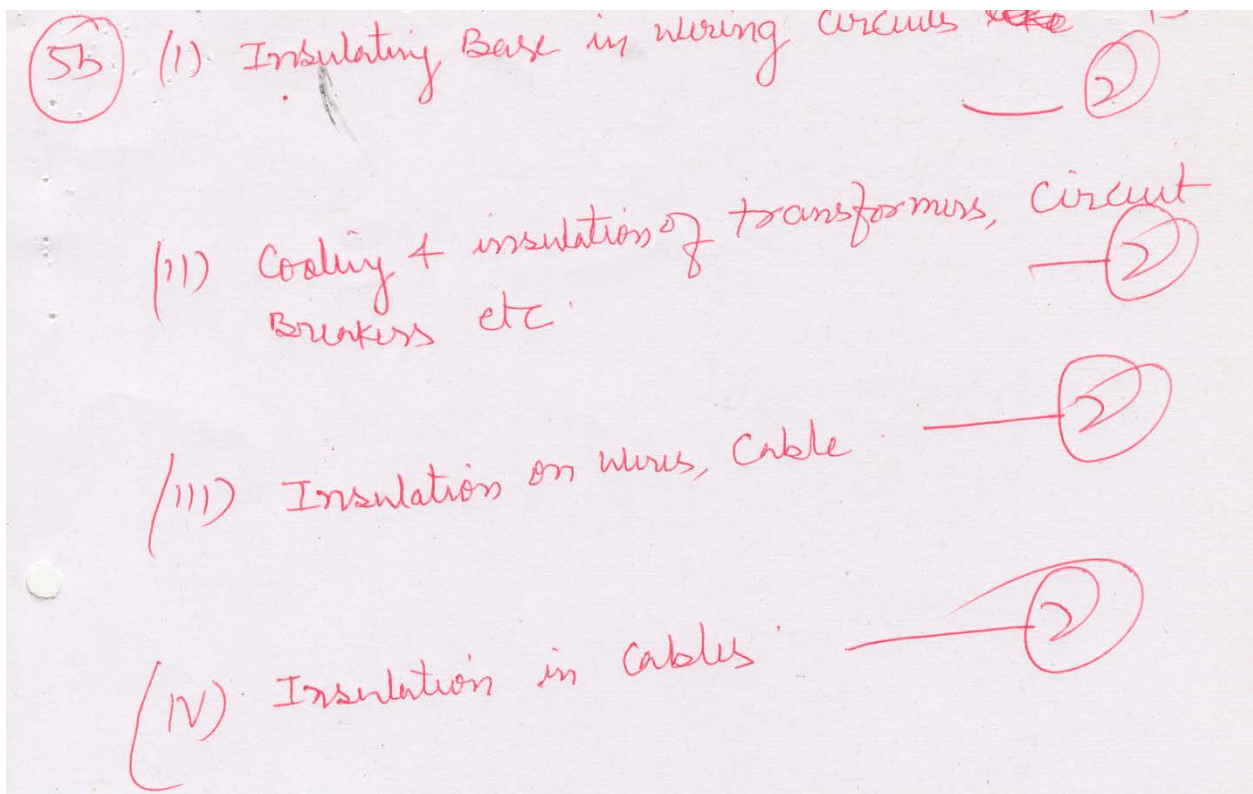 5b (i) Insulating Base in wiring circuits
— 2
(ii) Cooling & insulation of transformers, circuit
— 2
Breakers etc.
(iii) Insulation on wires, Cable — 2
(iv) Insulation in cables. — 2